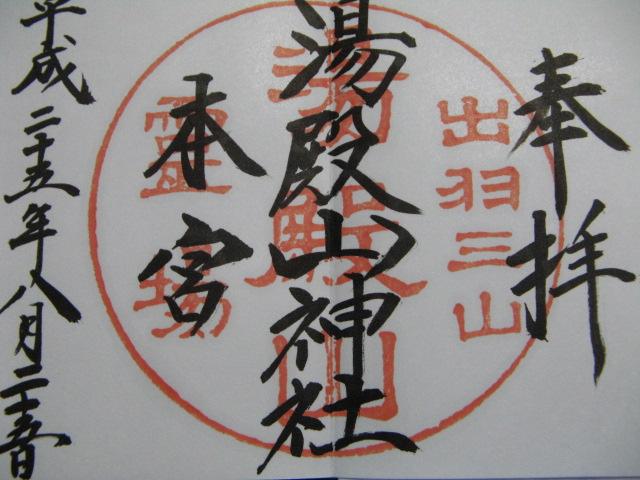 奉拝
出羽三山
湯殿山
霊場
湯殿山神社
本宮
平成二十五年八月二十五日